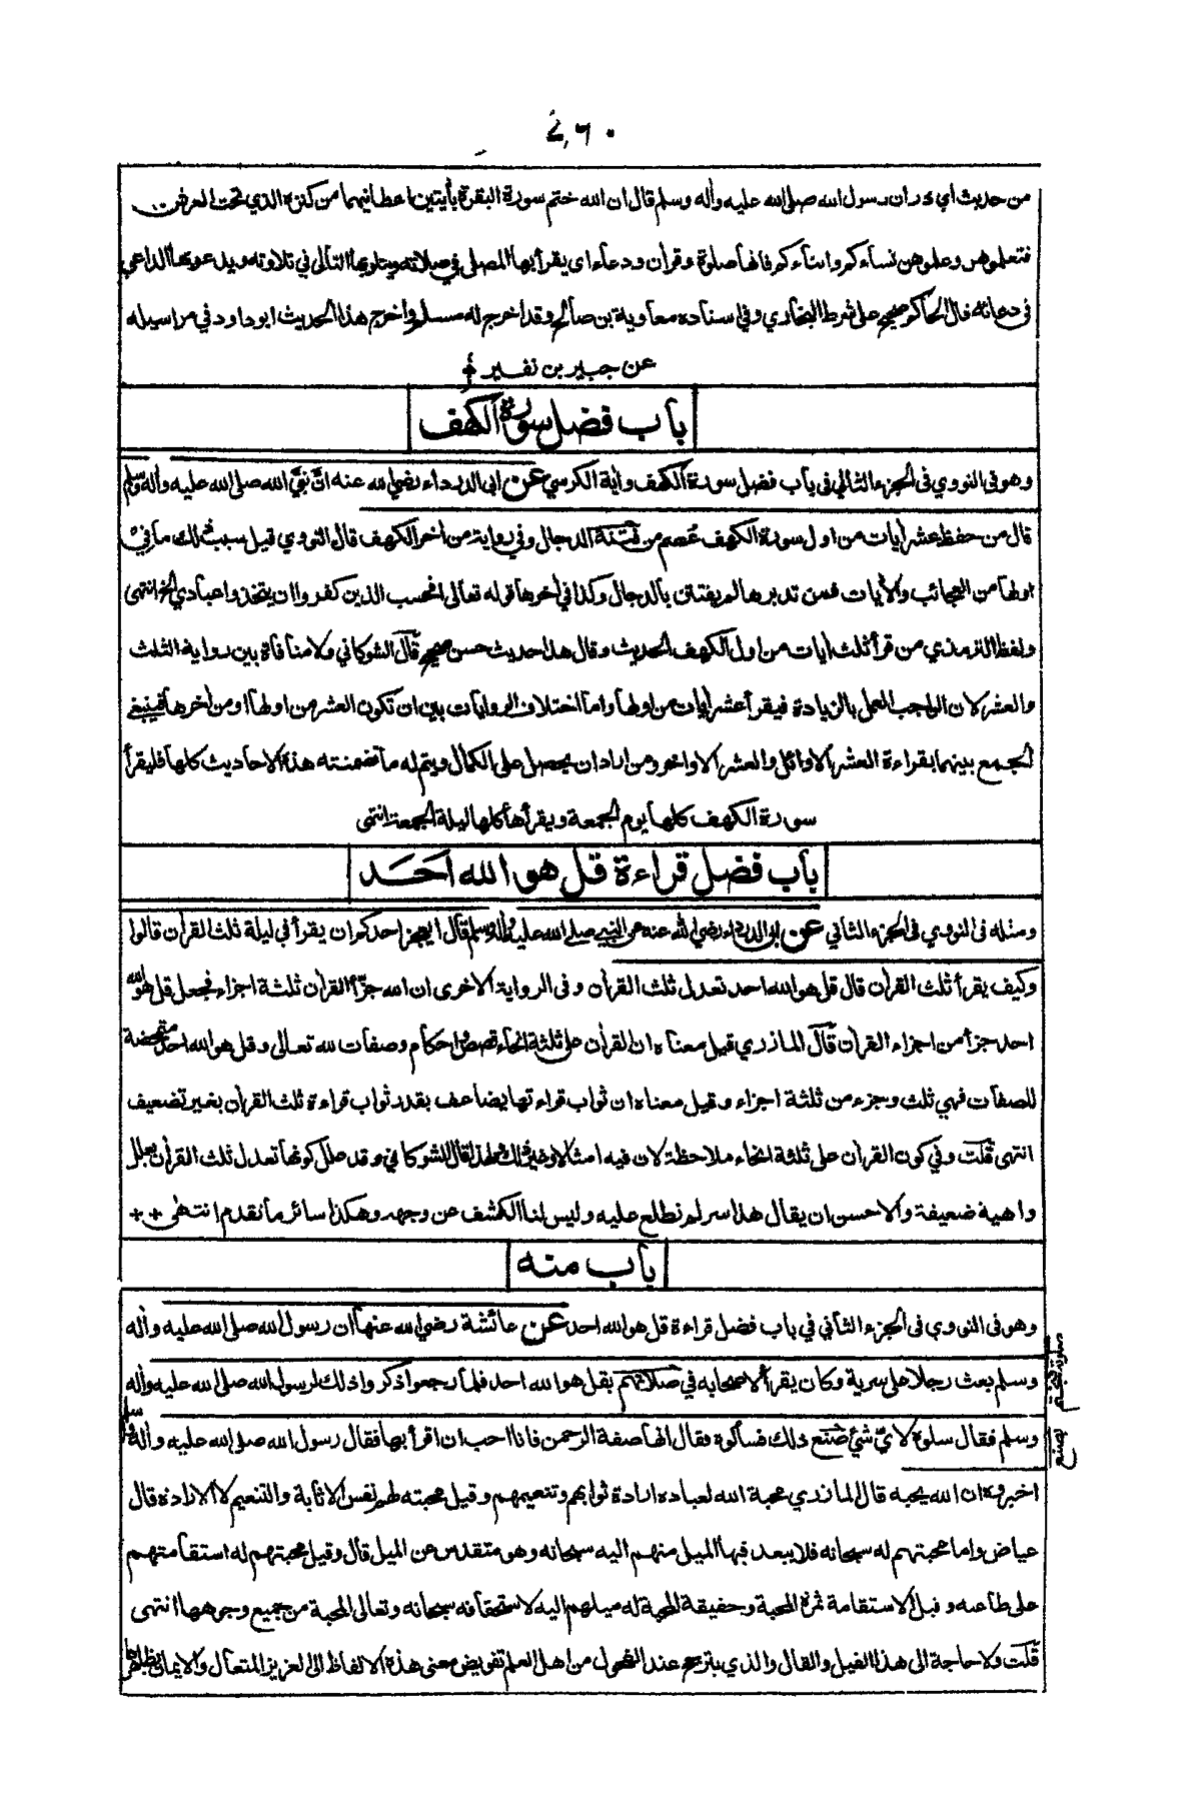 ٧٦٠
من حديث ابي ذر ان رسول الله صلى الله عليه واٰله وسلم قال ان الله ختم سورة البقرة بأيتين اعطانيهما من كنزه الذي تحت العرش
فتعلموهن وعلموهن نسآءكم وابنآءكم فانهأ صلوة وقرأن ودعآء اى يقرأ بها المصلى في صلاته ويتلوبها التالى في تلاوته ويدعوبها الداعي
فى دعائه قال الحاكم صحيح على شرط البخاري وفي اسناده معاوية بن صالح وقد اخرج له مسلم واخرج هذا الحديث ابو داود في مراسيله
عن جبير بن نفير
باب فضل سورة الكهف
وهو فى النووي فى الجزء الثانى فى بأب فضل سورة الكهف واٰية الكرسي عن ابى الدرداء رضي الله عنه انَّ نبيَّ الله صلى الله عليه واٰله وسلم
قال من حفظ عشر اٰيات من اول سورة الكهف عُصم من فتنة الدجال وفي رواية من اخر الكهف قال النووي قيل سبب ذلك ما في
اولها من العجائب والأيات فمن تدبرها لم يفتتن بالدجال وكذا في أخرها قوله تعالى افحسب الذين كفروا ان يتخذوا عبادي الخ انتهى
ولفظ الترمذي من قرأ ثلث اٰيات من اول الكهف الحديث وقال هذا حديث حسن صحيح قال الشوكاني ولا منافاة بين رواية الثلث
والعشر لان الواجب العمل بالزيادة فيقرأ عشر اٰيات من اولها واما اختلاف الروايات بين ان تكون العشر من اولها او من اٰخرها فينبغي
الجمع بينهما بقراءة العشر الاوائل والعشر الاواخر ومن اراد ان يحصل على الكمال ويتم له ما تضمنته هذه الاحاديث كلها فليقرأ
سورة الكهف كلها يوم الجمعة ويقرأها كلها ليلة الجمعة انتهى
باب فضل قراءة قل هو الله احد
ومثله فى النووي فى الجزء الثاني عن ابى الدرداء رضي الله عنه عن النبي صلى الله عليه واٰله وسلم قال ايعجز احدكم ان يقرأ في ليلة ثلث القرأن قالوا
وكيف يقرأ ثلث القرأن قال قل هو الله احد تعدل ثلث القرأن وفى الرواية الاخرى ان الله جزّأ القرأن ثلثة اجزاء فجعل قل هو الله
احد جزأ من اجزاء القرأن قال المازري قيل معناه ان القرأن على ثلثة انحاء قصص واحكام وصفات لله تعالى وقل هو الله احد متمحضة
للصفات فهي ثلث وجزء من ثلثة اجزاء وقيل معناه ان ثواب قراءتها يضاعف بقدر ثواب قراءة ثلث القرأن بغير تضعيف
انتهى قلت وفي كون القرأن على ثلثة انحاء ملاحظة لان فيه امثالا وغير ذلك ولهذا قال الشوكاني وقد علل كونها تعدل ثلث القرأن بعلل
واهية ضعيفة والاحسن ان يقال هذا سر لم نطلع عليه وليس لنا الكشف عن وجهه وهكذا سائر ما تقدم انتهى
باب منه
وهو فى النووي فى الجزء الثأني في باب فضل قراءة قل هو الله احد عن عائشة رضي الله عنها أن رسول الله صلى الله عليه واٰله
وسلم بعث رجلا على سرية وكان يقرأ لاصحابه في صلاتهم بقل هو الله احد فلما رجعوا ذكروا ذلك لرسول الله صلى الله عليه واٰله
وسلم فقال سلوه لايّ شيء صنع ذلك فسألوه فقال انها صفة الرحمن فانا احب ان اقرأ بها فقال رسول الله صلى الله عليه واٰله وسلم
اخبروه ان الله يحبه قال المازري محبة الله لعباده ارادة ثوابهم وتنعيمهم وقيل محبته لهم نفس الاثابة والتنعيم لا الارادة قال
عياض واما محبتهم له سبحانه فلا يبعد فيها الميل منهم اليه سبحانه وهو متقدس عن الميل قال وقيل محبتهم له استقامتهم
على طاعته وقيل الاستقامة ثمرة المحبة وحقيقة المحبة له ميلهم اليه لاستحقاقه سبحانه وتعالى المحبة من جميع وجوهها انتهى
قلت ولا حاجة الى هذا القيل والقال والذي يترجح عند الفحول من اهل العلم تفويض معنى هذه الالفاظ الى العزيز المتعال والايمان بظاهرها
يصنع